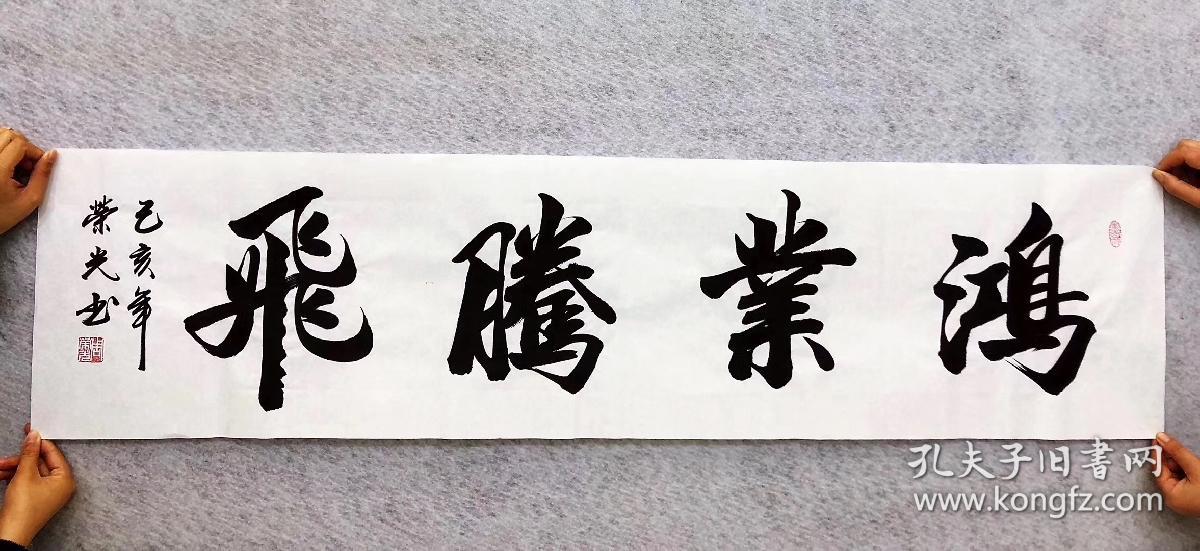 鴻業騰飛
己亥年
榮光书
孔夫子旧書网
www.kongfz.com